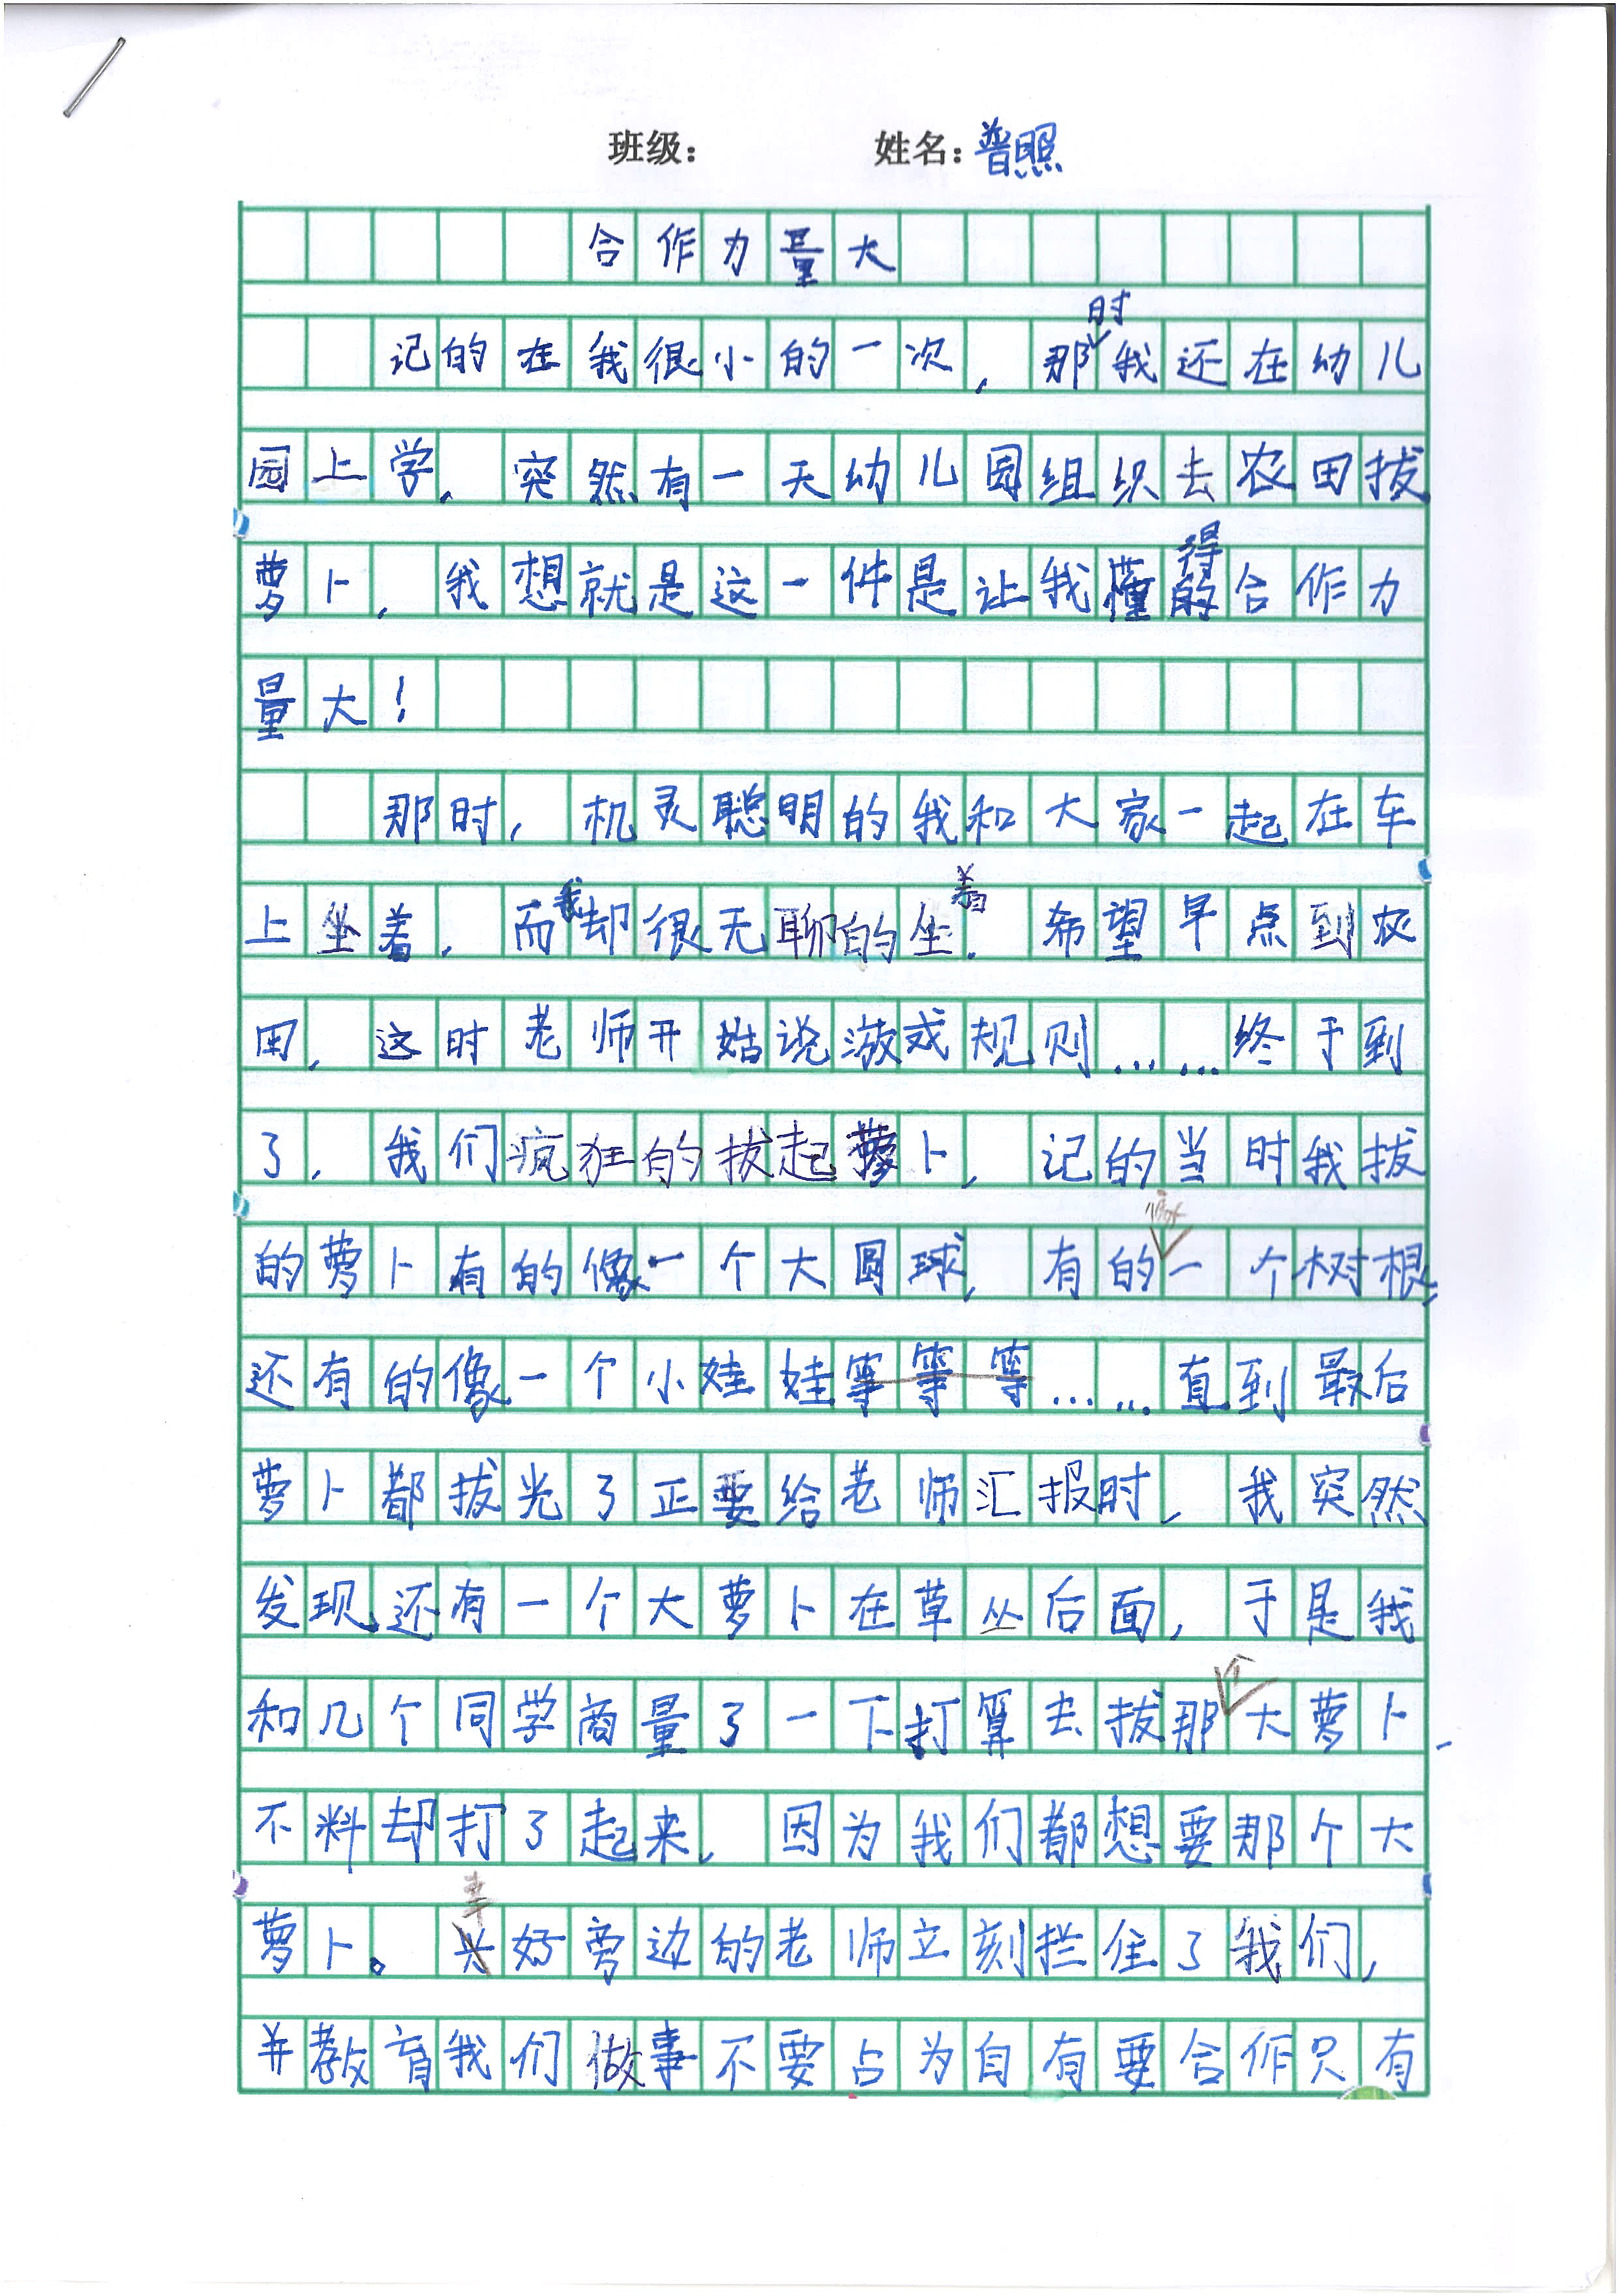 班级： 姓名：普照
合作力量大
记的在我很小的一次，那时我还在幼儿
园上学，突然有一天幼儿园组织去农田拔
萝卜，我想就是这一件是让我懂得合作力
量大！
那时，机灵聪明的我和大家一起在车
上坐着，而我却很无聊的坐着，希望早点到农
田，这时老师开始说游戏规则……终于到
了，我们疯狂的拔起萝卜，记的当时我拔
的萝卜有的像一个大圆球，有的像一个树根，
还有的像一个小娃娃等等等……直到最后
萝卜都拔光了正要给老师汇报时，我突然
发现还有一个大萝卜在草丛后面，于是我
和几个同学商量了一下打算去拔那个大萝卜，
不料却打了起来，因为我们都想要那个大
萝卜。幸好旁边的老师立刻拦住了我们，
并教育我们做事不要占为自有要合作只有